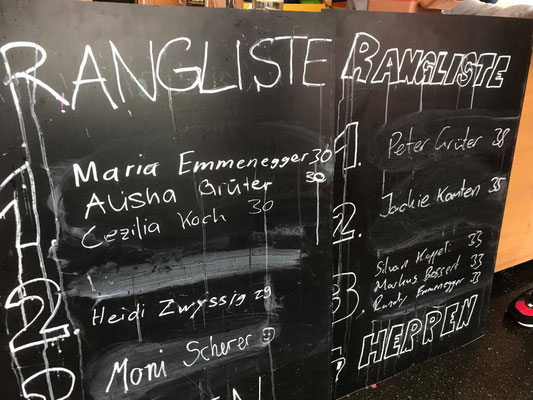 RANGLISTE
1.
Maria Emmenegger 30
Alisha Grüter 30
Cezilia Koch 30
2.
Heidi Zwyssig 29
Moni Scherer ☺
RANGLISTE
1.
Peter Grüter 38
2.
Jackie Kamten 35
3.
Silvan Kappeli 33
Markus Bossert 33
Randy Emmenegger 33
HERREN